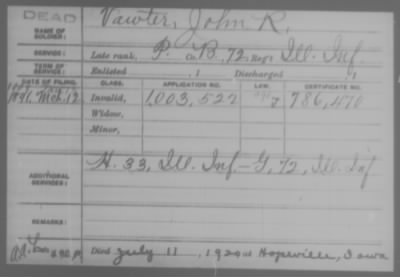 DEAD
NAME OF SOLDIER: Vawter, John R.
SERVICE: Late rank, P. Co. B, 72, Reg't Ill. Inf.
TERM OF SERVICE: Enlisted , 1 Discharged , 1
DATE OF FILING. CLASS. APPLICATION NO. LAW. CERTIFICATE NO.
1891, Mch. 12 Invalid, 1,003,522 786,470
Widow,
Minor,
ADDITIONAL SERVICES: H. 33, Ill. Inf. - G, 72, Ill. Inf
REMARKS:
Died July 11, 1920 at Hopeville, Iowa